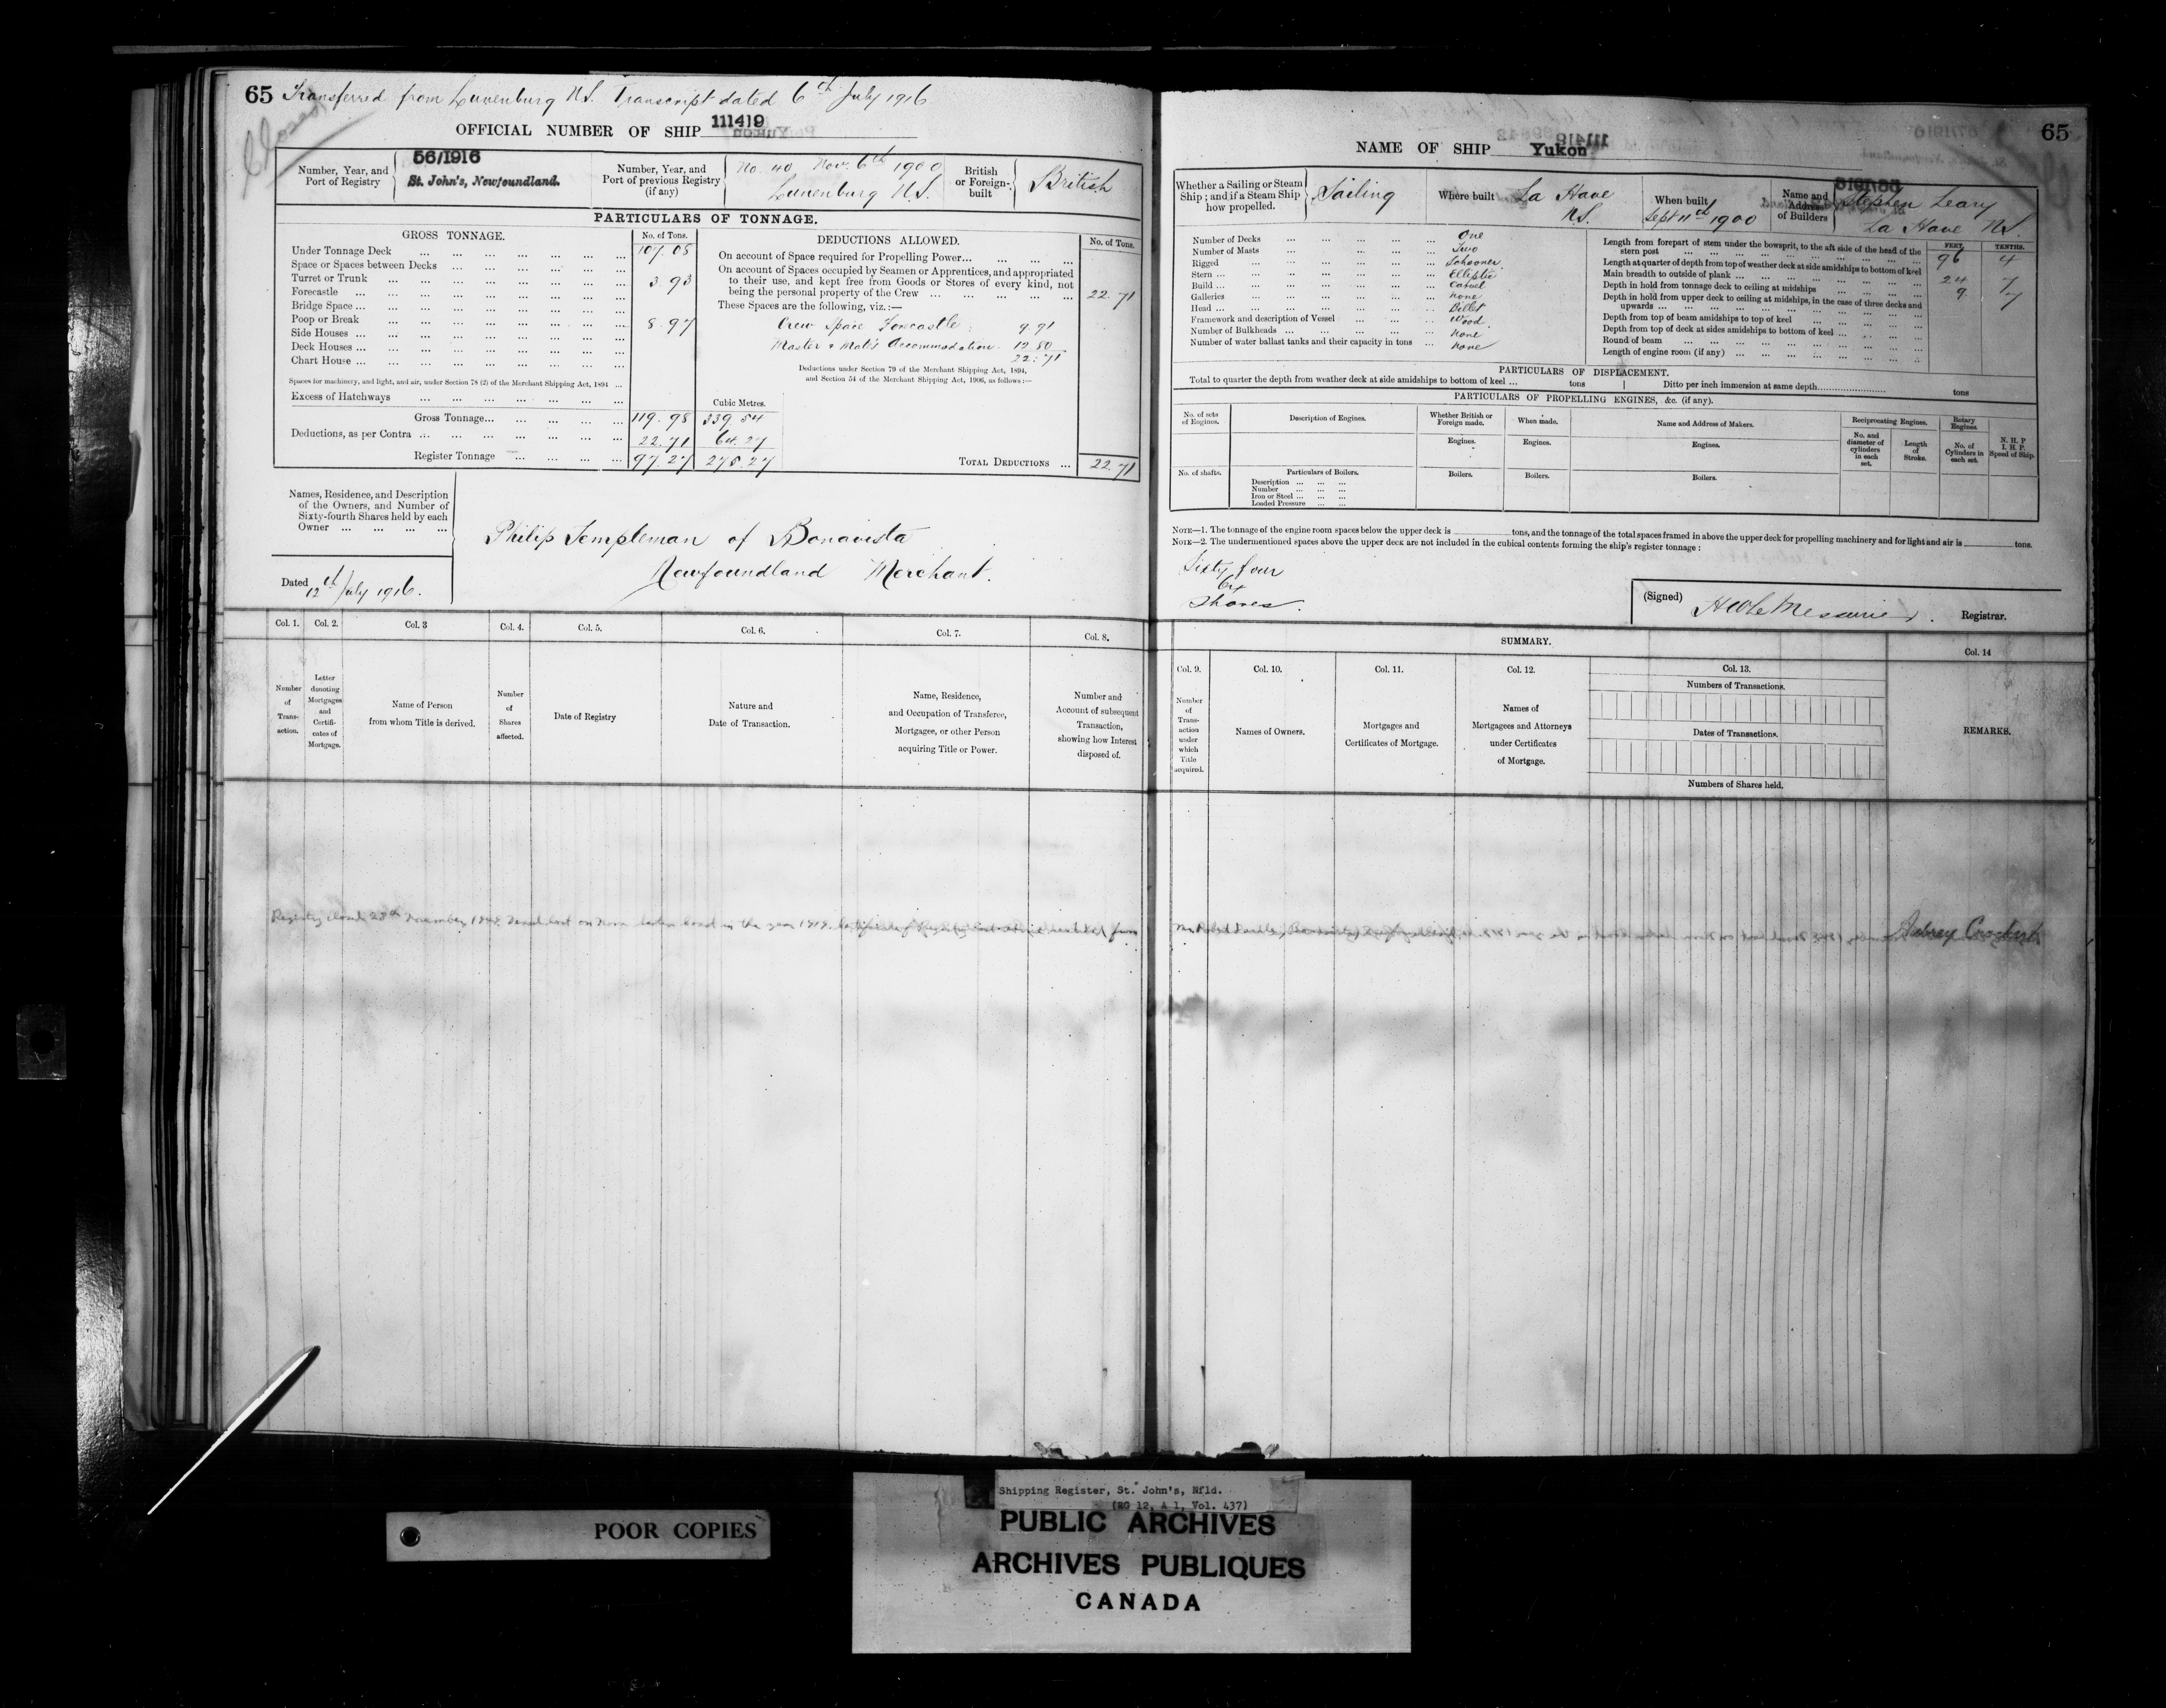 65 Transferred from Lunenburg N.S. Transcript dated 6th July 1916
Closed
OFFICIAL NUMBER OF SHIP 111419
Number, Year, and Port of Registry
56/1916
St. John's, Newfoundland.
Number, Year, and Port of previous Registry (if any)
No. 40 Nov. 6th 1900
Lunenburg N.S.
British or Foreign-built
British
PARTICULARS OF TONNAGE.
GROSS TONNAGE. No. of Tons.
Under Tonnage Deck ... 107.08
Space or Spaces between Decks ...
Turret or Trunk ... 3.93
Forecastle ...
Bridge Space ...
Poop or Break ... 8.97
Side Houses ...
Deck Houses ...
Chart House ...
Spaces for machinery, and light, and air, under Section 78 (2) of the Merchant Shipping Act, 1894 ...
Excess of Hatchways ...
Cubic Metres.
Gross Tonnage... 119.98 339.54
Deductions, as per Contra ... 22.71 64.27
Register Tonnage ... 97.27 275.27
DEDUCTIONS ALLOWED. No. of Tons.
On account of Space required for Propelling Power...
On account of Spaces occupied by Seamen or Apprentices, and appropriated
to their use, and kept free from Goods or Stores of every kind, not
being the personal property of the Crew ... 22.71
These Spaces are the following, viz.:—
Crew Space Forecastle 9.91
Master & Mate's Accommodation 12.80
22.71
Deductions under Section 79 of the Merchant Shipping Act, 1894,
and Section 54 of the Merchant Shipping Act, 1906, as follows:—
TOTAL DEDUCTIONS ... 22.71
Names, Residence, and Description
of the Owners, and Number of
Sixty-fourth Shares held by each
Owner ...
Philip Templeman of Bonavista
Newfoundland Merchant.
Dated 12th July 1916.
Col. 1. Col. 2. Col. 3 Col. 4. Col. 5. Col. 6. Col. 7. Col. 8.
Number of Trans-action.
Letter denoting Mortgages and Certifi-cates of Mortgage.
Name of Person from whom Title is derived.
Number of Shares affected.
Date of Registry
Nature and Date of Transaction.
Name, Residence, and Occupation of Transferee, Mortgagee, or other Person acquiring Title or Power.
Number and Account of subsequent Transaction, showing how Interest disposed of.
Registry closed 28th November 19 Vessel lost on in the year 1919. Certificate of Registry
65
NAME OF SHIP Yukon
Whether a Sailing or Steam Ship; and if a Steam Ship how propelled.
Sailing
Where built
La Have
N.S.
When built
Sept 11th 1900
Name and Address of Builders
Stephen Leary
La Have N.S.
Number of Decks ... One
Number of Masts ... Two
Rigged ... Schooner
Stern ... Elliptic
Build ... Carvel
Galleries ... None
Head ... Billet
Framework and description of Vessel ... Wood
Number of Bulkheads ... None
Number of water ballast tanks and their capacity in tons ... None
FEET. TENTHS.
Length from forepart of stem under the bowsprit, to the aft side of the head of the
stern post ... 96 4
Length at quarter of depth from top of weather deck at side amidships to bottom of keel
Main breadth to outside of plank ... 24 7
Depth in hold from tonnage deck to ceiling at midships ... 9 7
Depth in hold from upper deck to ceiling at midships, in the case of three decks and
upwards ...
Depth from top of beam amidships to top of keel ...
Depth from top of deck at sides amidships to bottom of keel ...
Round of beam ...
Length of engine room (if any) ...
PARTICULARS OF DISPLACEMENT.
Total to quarter the depth from weather deck at side amidships to bottom of keel ... tons Ditto per inch immersion at same depth... tons
PARTICULARS OF PROPELLING ENGINES, &c. (if any).
No. of sets of Engines.
Description of Engines.
Whether British or Foreign made.
When made.
Name and Address of Makers.
Reciprocating Engines.
Rotary Engines.
N. H. P I. H. P. Speed of Ship.
Engines. Engines. Engines.
No. and diameter of cylinders in each set.
Length of Stroke.
No. of Cylinders in each set.
No. of shafts. Particulars of Boilers. Boilers. Boilers. Boilers.
Description ...
Number ...
Iron or Steel ...
Loaded Pressure ...
NOTE—1. The tonnage of the engine room spaces below the upper deck is tons, and the tonnage of the total spaces framed in above the upper deck for propelling machinery and for light and air is tons.
NOTE—2. The undermentioned spaces above the upper deck are not included in the cubical contents forming the ship's register tonnage:
Sixty four
64
Shares.
(Signed) H W Le Messurier. Registrar.
SUMMARY.
Col. 9. Col. 10. Col. 11. Col. 12. Col. 13. Col. 14
Number of Trans-action under which Title acquired.
Names of Owners.
Mortgages and Certificates of Mortgage.
Names of Mortgagees and Attorneys under Certificates of Mortgage.
Numbers of Transactions.
Dates of Transactions.
Numbers of Shares held.
REMARKS.
Aubrey
Shipping Register, St. John's, Nfld.
(RG 12, A 1, Vol. 437)
POOR COPIES
PUBLIC ARCHIVES
ARCHIVES PUBLIQUES
CANADA